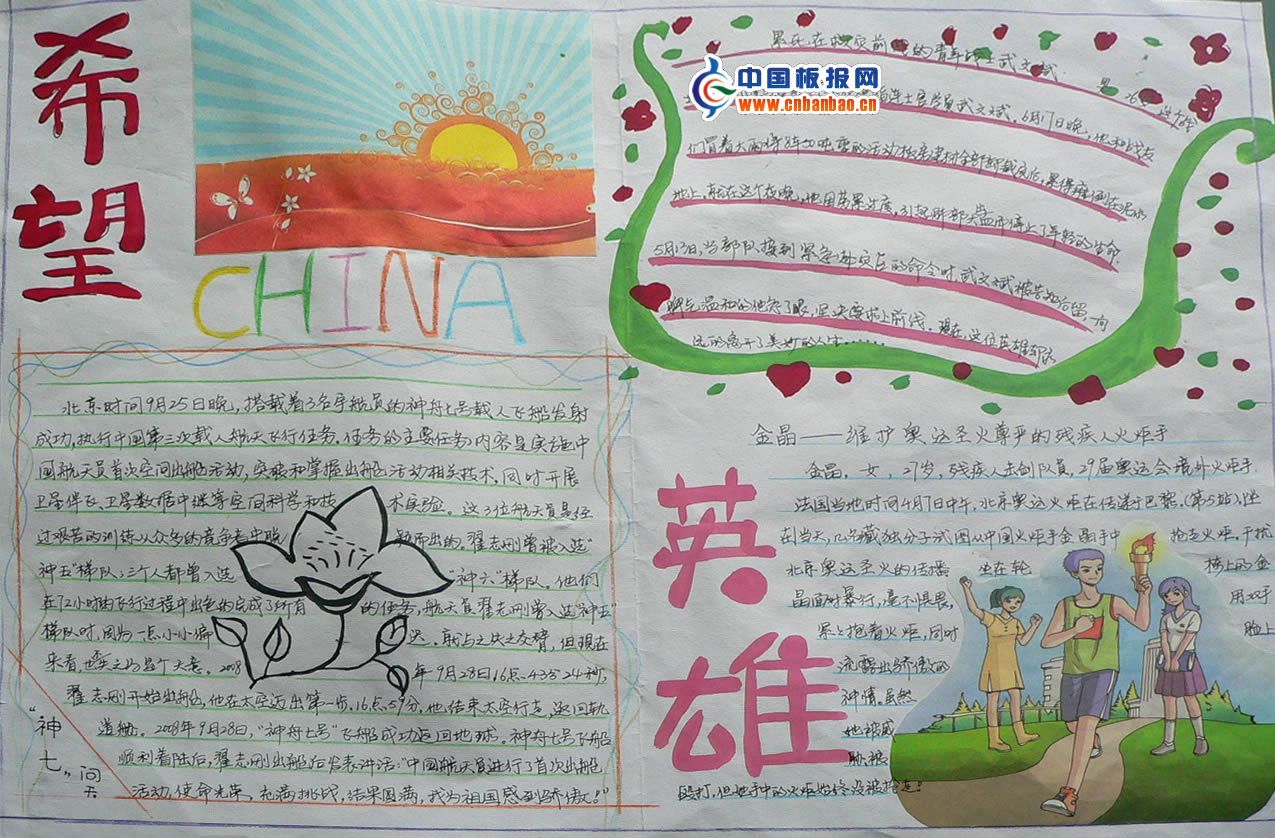 希望
CHINA
北京时间9月25日晚，搭载着3名宇航员的神舟七号载人飞船发射
成功，执行中国第三次载人航天飞行任务。任务的主要任务内容是实施中
国航天员首次空间出舱活动，突破和掌握出舱活动相关技术，同时开展
卫星伴飞、卫星数据中继等空间科学和技术实验。这3位航天员是经
过艰苦的训练从众多的竞争者中脱颖而出的，翟志刚曾被入选
“神五”梯队，三个人都曾入选“神六”梯队。他们
在72小时的飞行过程中出色的完成了所有的任务，航天员翟志刚曾入选“神五”
梯队时，因为一点小小偏迟，就与之失之交臂，但现在
来看，
2008年9月28日16点43分24秒，
翟志刚开始出舱，他在太空迈出第一步，16点59分，他结束太空行走，返回轨
道舱。2008年9月28日，“神舟七号”飞船成功返回地球。神舟七号飞船
顺利着陆后，翟志刚出舱后发表讲话：“中国航天员进行了首次出舱
活动，使命光荣，充满挑战，结果圆满，我为祖国感到骄傲！”
“神七”问天
中国板报网
www.cnbanbao.cn
累死在救灾前线的青年战士武文斌
士官学员武文斌。6月17日晚，他和战友
们冒着大雨将8车
的活动板房建材全部卸载完后，累得瘫倒在泥水
地上，就在这个夜晚，他因劳累过度，引起肺部大出血而停止了年轻的生命
5月13日，当部队接到紧急赴灾区的命令时，武文斌被告知留守，一向
脾气温和的他急了眼，坚决要求上前线。现在，这位英雄却永
远的离开了美妙的人生……
英雄
金晶——维护奥运圣火尊严的残疾人火炬手
金晶，女，27岁，残疾人击剑队员，29届奥运会境外火炬手
法国当地时间4月7日中午，北京奥运火炬在传递于巴黎（第5站），也
在当天，几名藏独分子试图从中国火炬手金晶手中抢走火炬，干扰
北京奥运圣火的传播
坐在轮椅上的金
晶面对暴行，毫不惧畏，用双手
紧紧抱着火炬，同时脸上
流露出骄傲的
神情。虽然
她被威
胁、被
殴打，但她手中的火炬始终没被抢走！